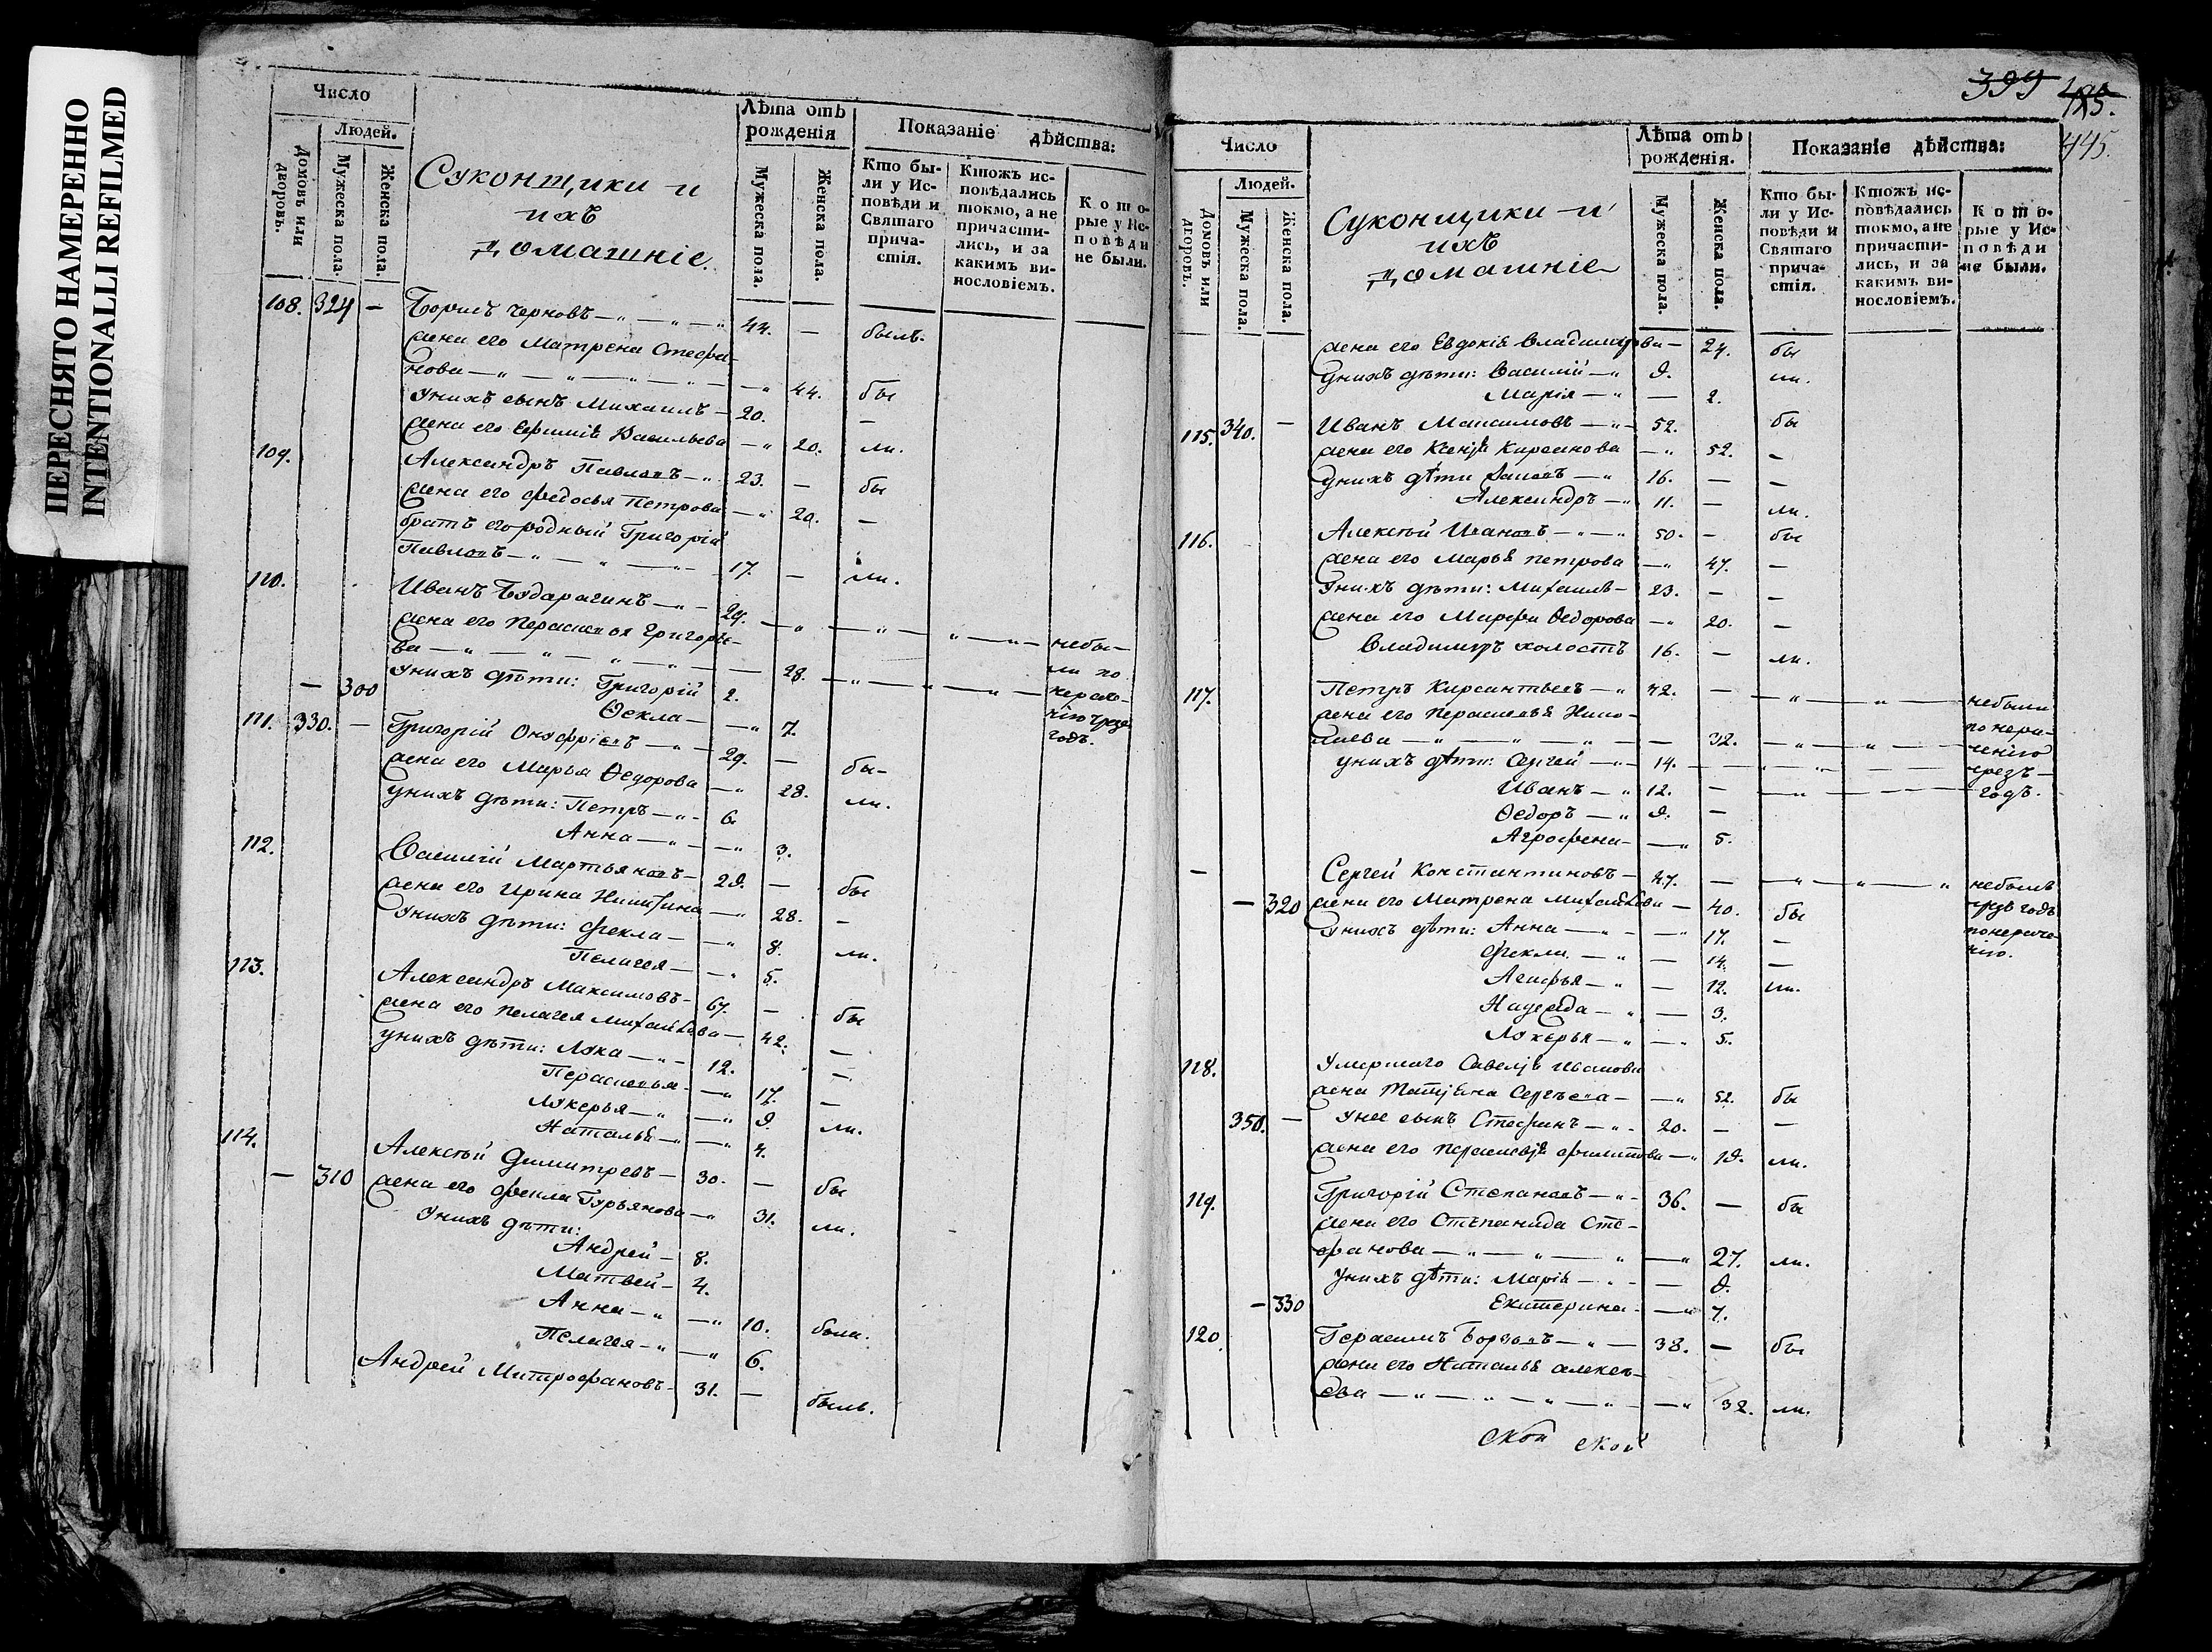 ПЕРЕСНЯТО НАМЕРЕННО
INTENTIONALLI REFILMED
Число
Людей.
Домовъ или дворовъ.
Мужеска пола.
Женска пола.
Суконщики и
ихъ
домашніе.
Лѣта отъ рожденія
Мужеска пола.
Женска пола.
Показаніе дѣйства:
Кто бы-
ли у Ис-
повѣди и
Святаго
прича-
стія.
Ктожъ ис-
повѣдались
токмо, а не
причасти-
лись, и за
какимъ ви-
нословіемъ.
Кото-
рые у Ис-
повѣди
не были.
108. 324 — Борисъ Черновъ — 44. — былъ.
жена его Матрена Стефа-
нова — 44. бы
Унихъ сынъ Михаилъ — 20. —
жена его Евфимія Васильева — 20. ли.
109. Александръ Павловъ — 23. — бы
жена его Федосья Петрова — 20. —
братъ его родный Григорій
Павловъ — 17. — ли.
110. Иванъ Бударагинъ — 29. —
жена его Парасковья Григорье-
ва — 28. небы-
ли по
Унихъ дѣти: Григорій 2.
— 300 Ѳекла — 7. годъ.
111. 330. — Григорій Онуфріевъ — 29. — бы-
жена его Марья Ѳедорова — 28. ли.
унихъ дѣти: Петръ — 6.
Анна — 3.
112. Василій Мартьяновъ — 29. — бы
жена его Ирина Никитина — 28. —
Унихъ дѣти: Фекла — 8. ли.
Пелагея — 5.
113. Александръ Максимовъ — 67. — бы
жена его Пелагея Михайлова — 42. —
унихъ дѣти: Лука — 12. —
Парасковья — 17. —
Лукерья — 9. ли.
Наталья — 4.
114. Алексѣй Димитревъ — 30. — бы
— 310 жена его Фекла Гурьянова — 31. ли.
Унихъ дѣти:
Андрей — 8.
Матвей — 4.
Анна — 10. была.
Пелагея — 6.
Андрей Митрофановъ — 31. — былъ.
399
445.
Число
Людей.
Домовъ или дворовъ.
Мужеска пола.
Женска пола.
Суконщики и
ихъ
домашніе
Лѣта отъ рожденія.
Мужеска пола.
Женска пола.
Показаніе дѣйства:
Кто бы-
ли у Ис-
повѣди и
Святаго
прича-
стія.
Ктожъ ис-
повѣдались
токмо, а не
причасти-
лись, и за
какимъ ви-
нословіемъ.
Кото-
рые у Ис-
повѣди
не были.
жена его Евдокія Владимирова — 24. бы
Унихъ дѣти: Василій — 9. ли.
Марія — 2.
115. 340. — Иванъ Максимовъ — 52. бы
жена его Ксенія Кирсанова — 52. —
Унихъ дѣти — 16. — —
Александръ — 11. — ли.
116. Алексѣй Ивановъ — 50. — бы
жена его Марья Петрова — 47. —
Унихъ дѣти: Михаилъ — 23. — —
жена его Марфа Ѳедорова — 20. —
Владимиръ холостъ 16. — ли.
117. Петръ Кирсантьевъ — 42. — небыли
жена его Парасковья Нико- по нера-
лаева — 32. — ченію
унихъ дѣти: Сергей — 14. — чрезъ —
Иванъ — 12. — годъ.
Ѳедоръ — 9. —
Агрофена — 5.
— Сергей Константиновъ — 47. — небылъ
— 320 жена его Матрена Михайлова — 40. бы чрезъ годъ
Унихъ дѣти: Анна — 17. — понераче-
Фекла — 14. — нію.
Агафья — 12. ли.
Надежда — 3.
Лукерья — 5.
118. Умершаго Савелія Иванова
жена Татіяна Сергѣева — 52. бы
350. — Унее сынъ Стефанъ — 20. — —
жена его Парасковія Филипова — 19. ли.
119. Григорій Степановъ — 36. — бы
жена его Степанида Сте-
фанова — 27. ли.
Унихъ дѣти: Марія — 9.
— 330 Екатерина — 7.
120 Герасимъ Борзовъ — 38. — бы
жена его Наталья Алексѣ-
ева — 32. ли.
ской ской